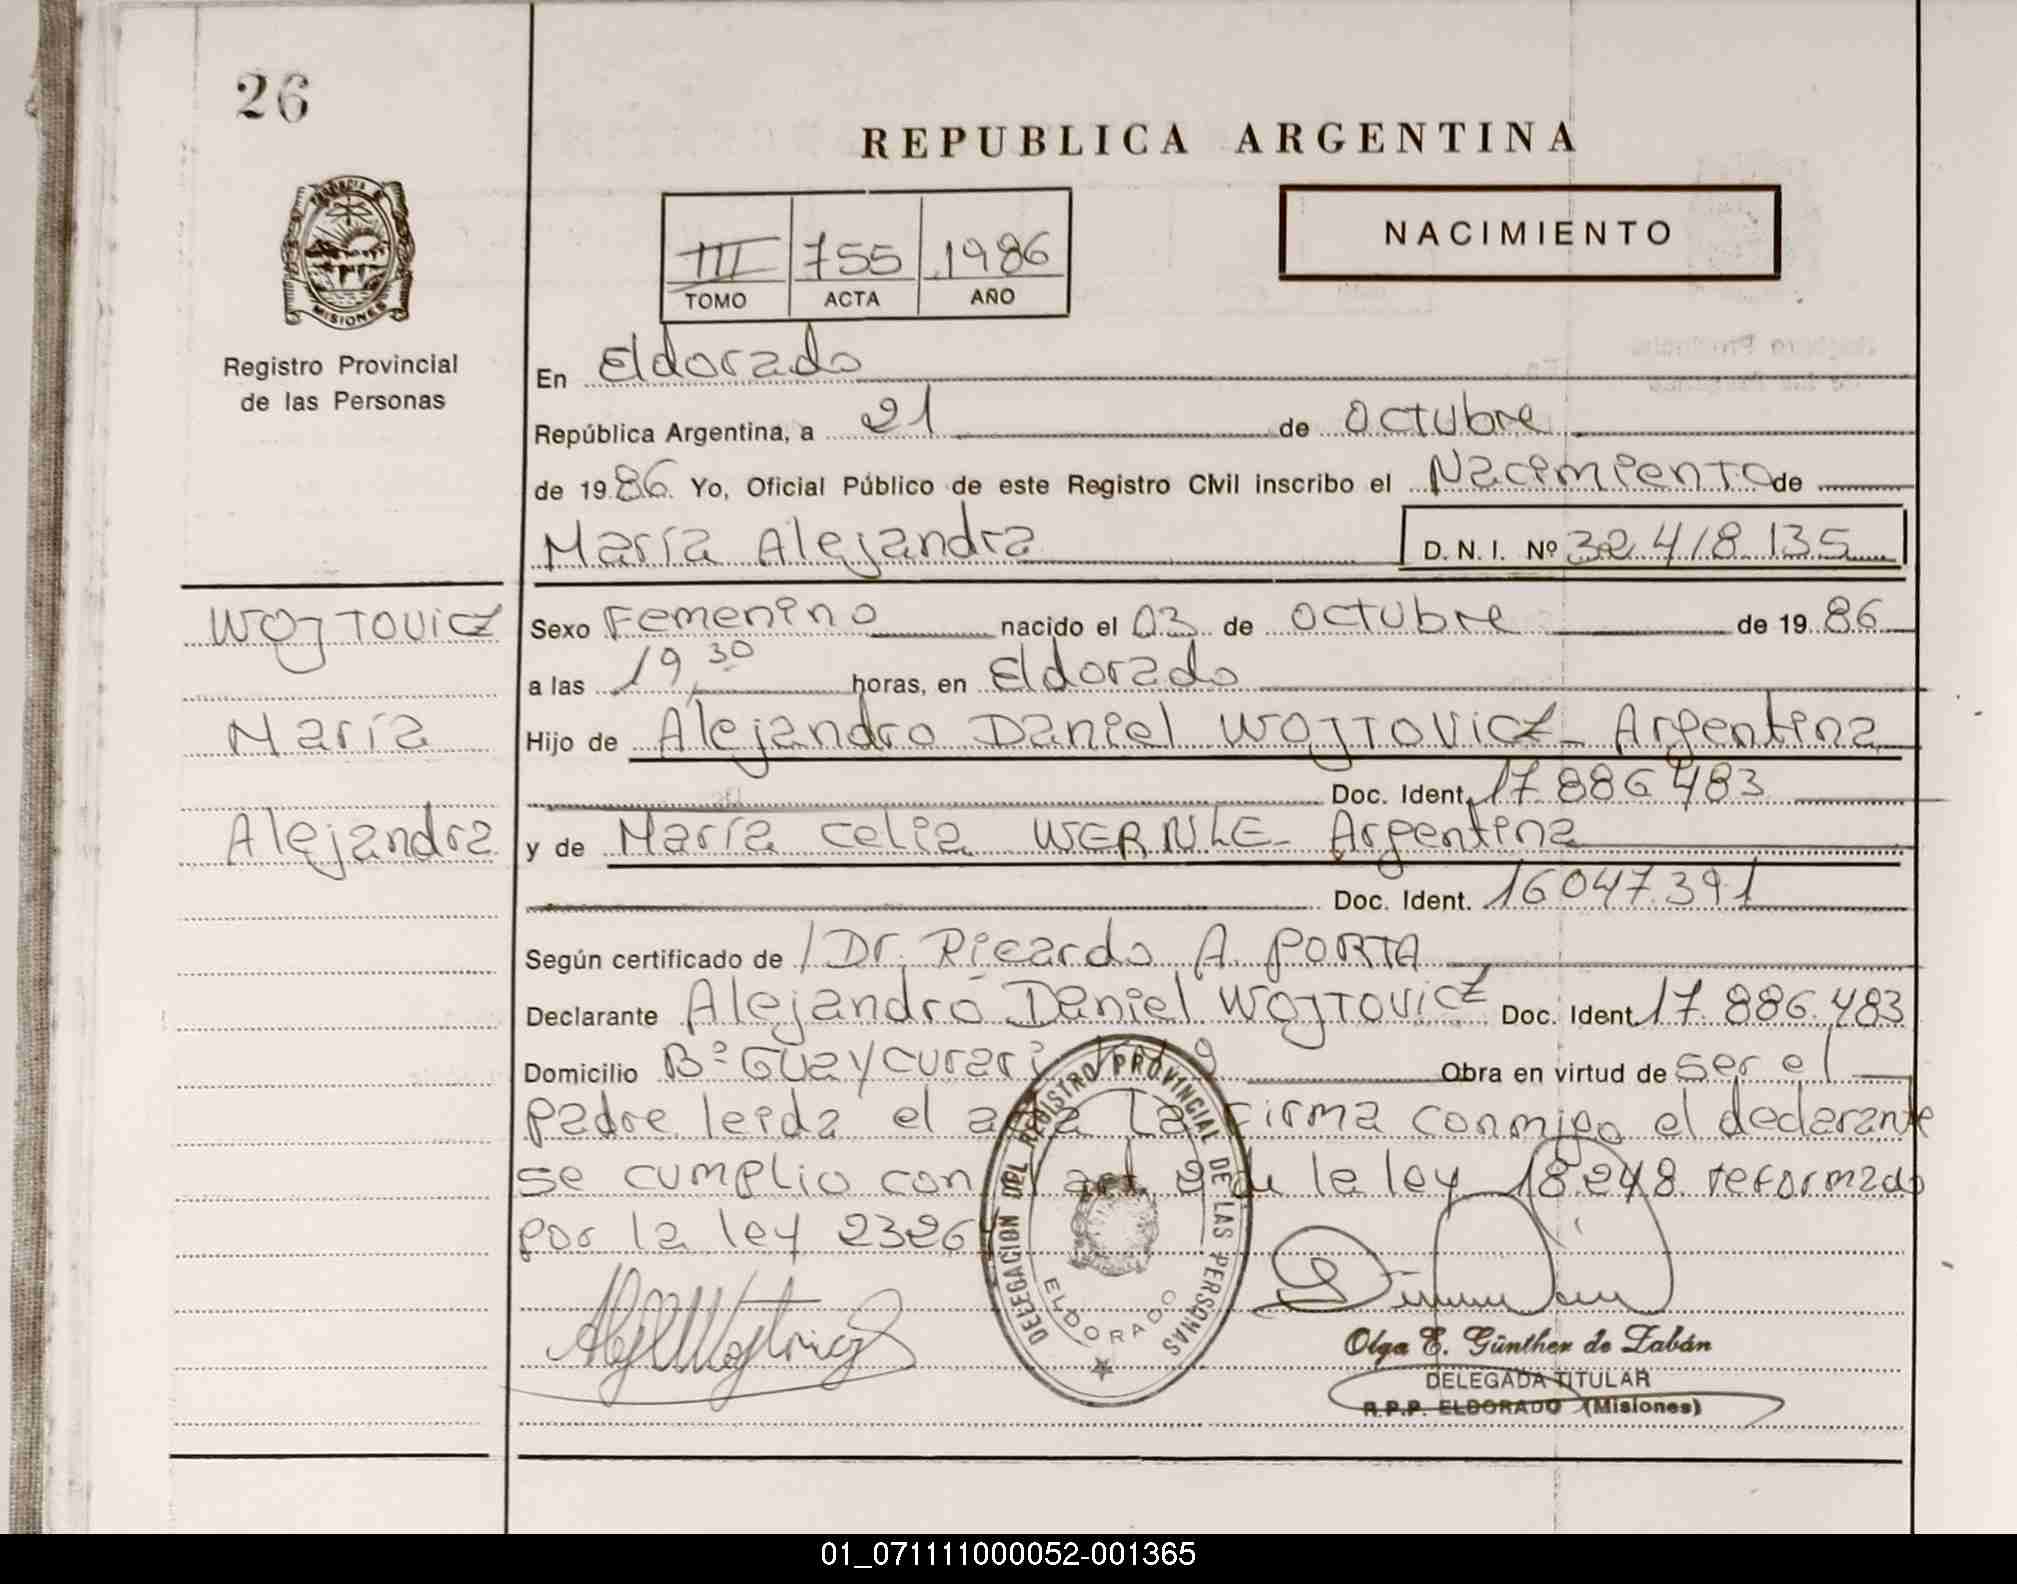 26
REPUBLICA ARGENTINA
NACIMIENTO
III 755 1986
TOMO ACTA AÑO
Provincia de
MISIONES
Registro Provincial
de las Personas
En Eldorado
República Argentina, a 21 de octubre
de 1986. Yo, Oficial Público de este Registro Civil inscribo el Nacimiento de
María Alejandra D. N. I. Nº 32.418.135
WOJTOVICZ
María
Alejandra
Sexo Femenino nacido el 03 de octubre de 1986
a las 19,30 horas, en Eldorado
Hijo de Alejandro Daniel WOJTOVICZ - Argentina
Doc. Ident. 17.886.483
y de María Celia WERNLE - Argentina
Doc. Ident. 16.047.391
Según certificado de Dr. Ricardo A. PORTA
Declarante Alejandro Daniel WOJTOVICZ Doc. Ident. 17.886.483
Domicilio Bº Guaycurari 9 Obra en virtud de ser el
padre leida el acta La firma conmigo el declarante
se cumplio con art. 2 de la ley 18.248 reformado
por la ley 2326
DELEGACION DEL REGISTRO PROVINCIAL DE LAS PERSONAS
ELDORADO
Olga E. Günther de Zabán
DELEGADA TITULAR
R.P.P. ELDORADO (Misiones)
01_071111000052-001365